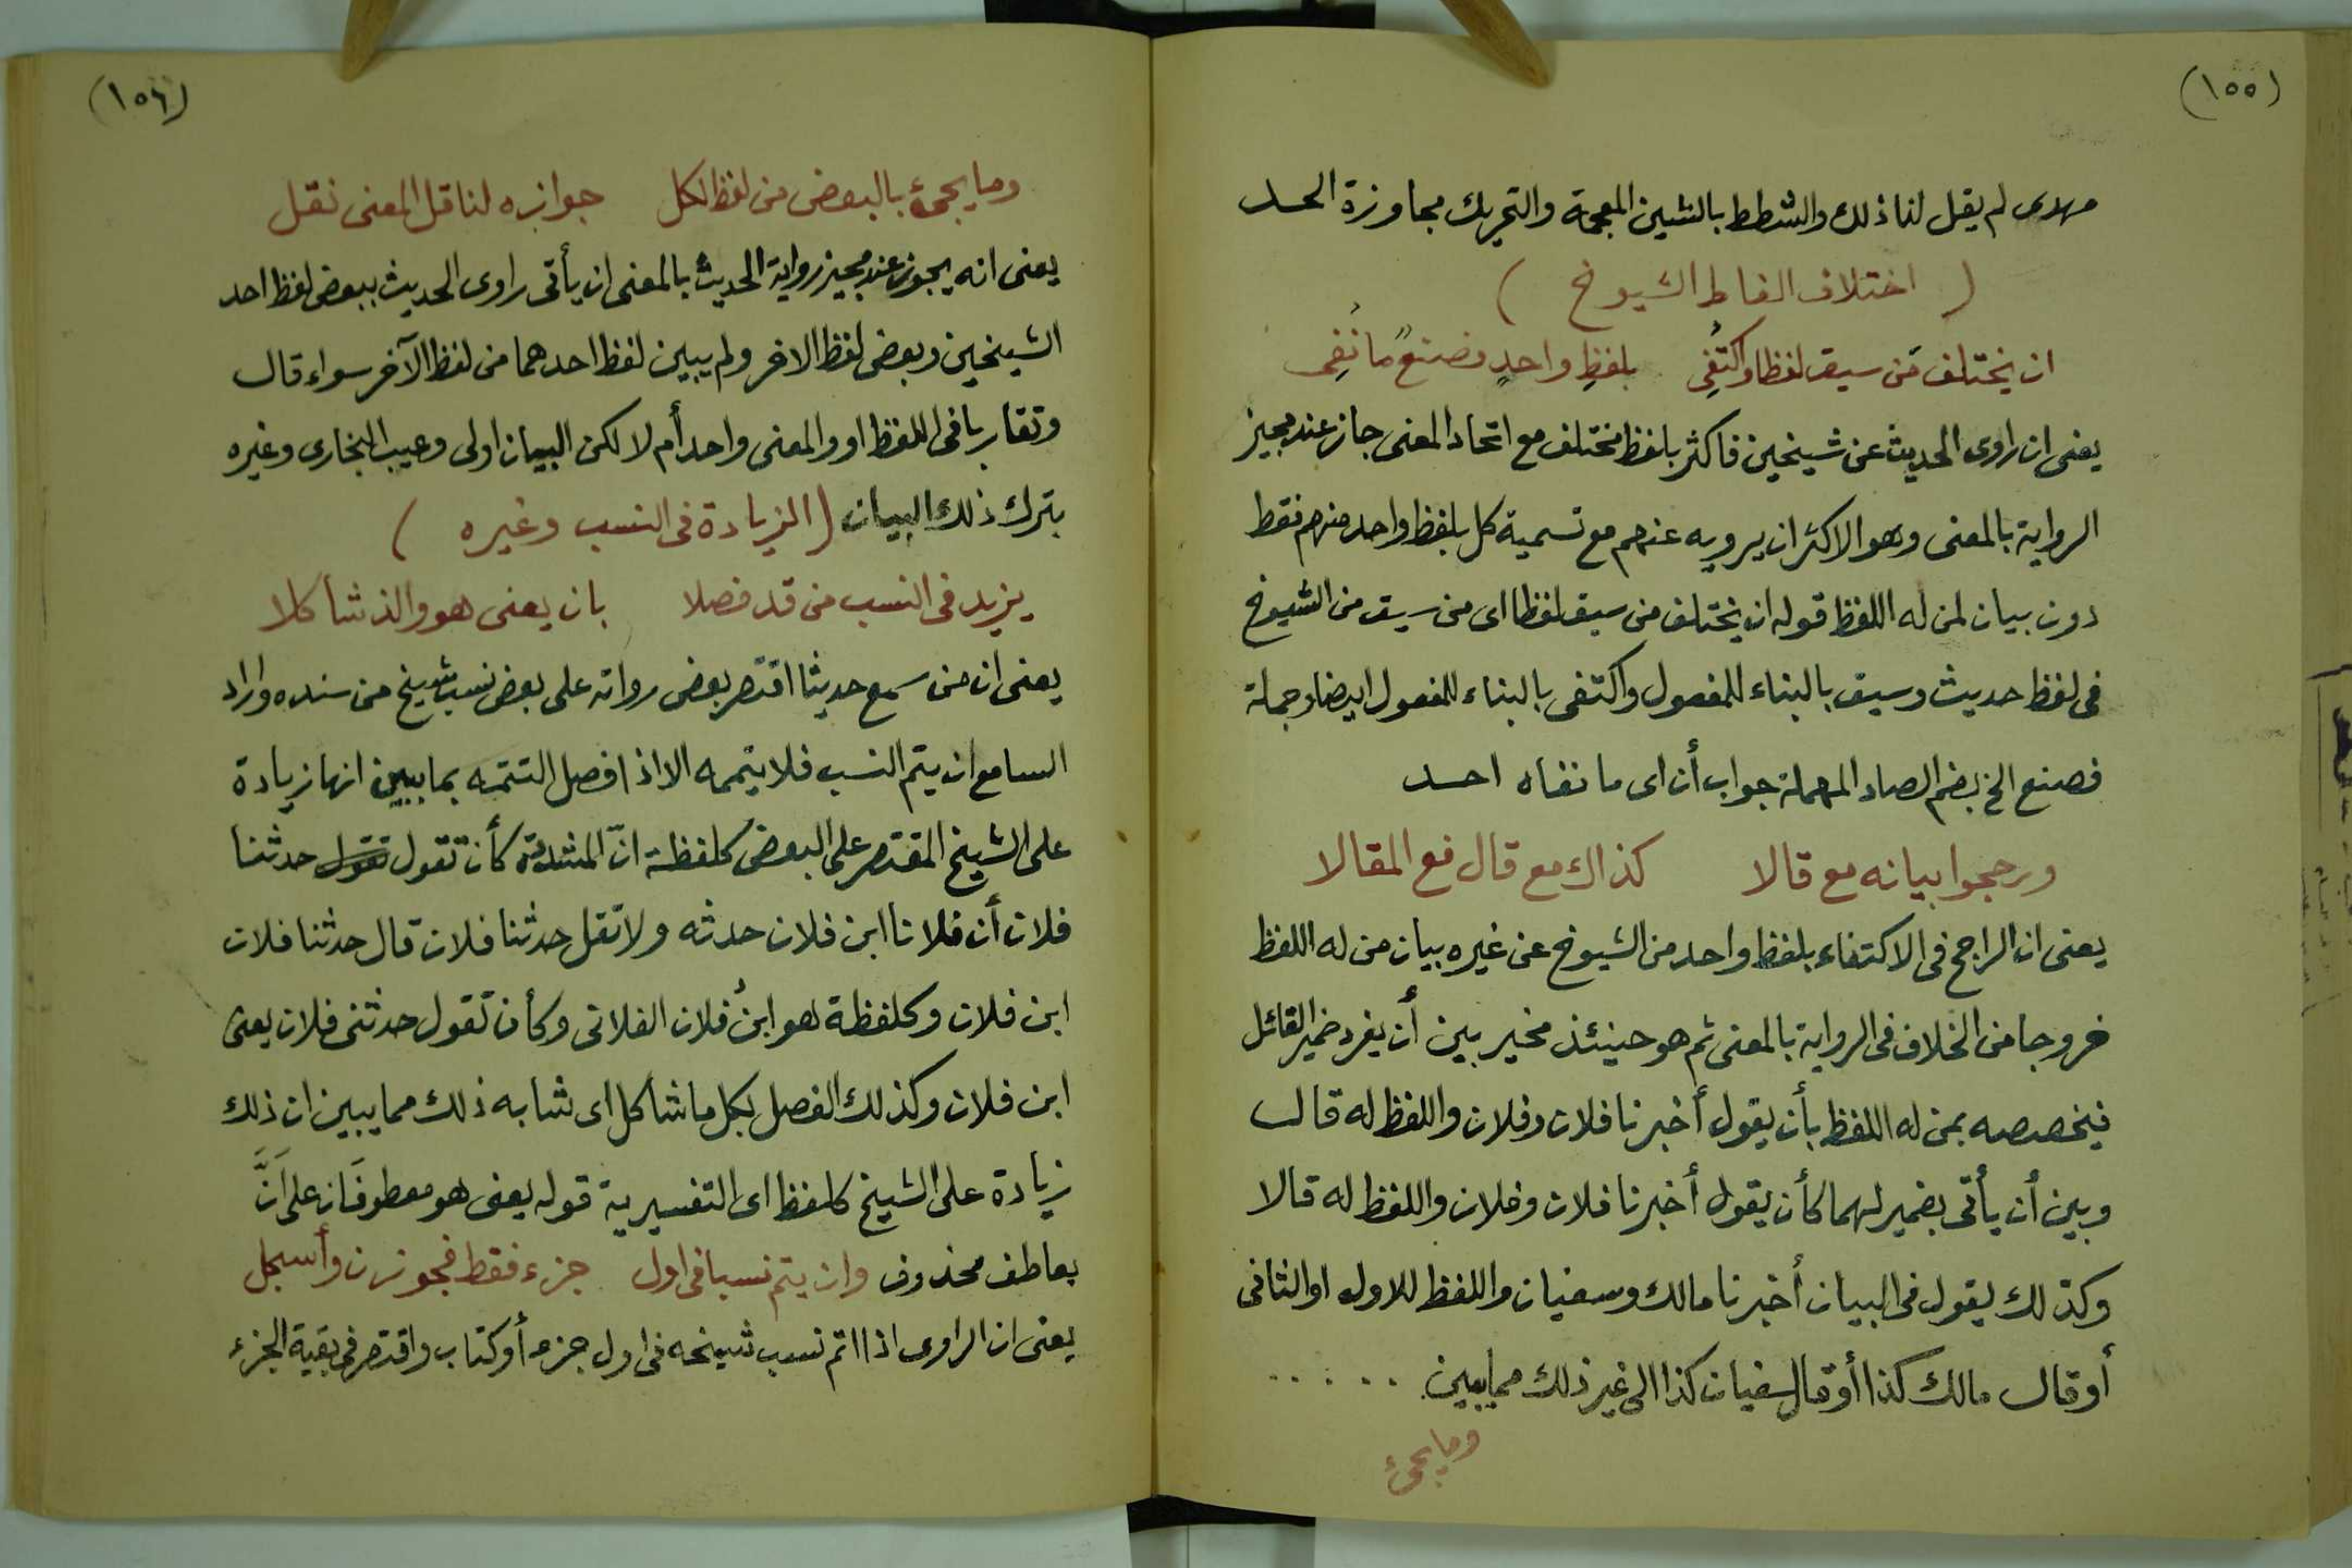 (١٥٥)
مهدى لم يقل لنا ذلك والشطط بالشين المعجمة والتحريك مجاوزة الحد
( اختلاف الفاظ الشيوخ )
ان يختلف مَن سيق لفظا واكتُفِى بلفظِ واحدٍ فصنعٌ ما نُفِى
يعنى ان راوى الحديث عن شيخين فاكثر بلفظ مختلف مع اتحاد المعنى جاز عند مجيز
الرواية بالمعنى وهو الاكثر ان يرويه عنهم مع تسمية كل بلفظ واحد منهم فقط
دون بيان لمن له اللفظ قوله ان يختلف من سيق لفظا اى من سيق من الشيوخ
فى لفظ حديث وسيق بالبناء للمفعول واكتفى بالبناء للمفعول ايضا وجملة
فصنع الخ بضم الصاد المهملة جواب أن اى ما نفاه احد
ورجحوا بيانه مع قالا كذاك مع قال فع المقالا
يعنى ان الراجح فى الاكتفاء بلفظ واحد من الشيوخ عن غيره بيان من له اللفظ
خروجا من الخلاف فى الرواية بالمعنى ثم هو حينئذ مخير بين أن يفرد ضمير القائل
فيخصصه بمن له اللفظ بأن يقول أخبرنا فلان وفلان واللفظ له قال
وبين أن يأتى بضمير لهما كأن يقول أخبرنا فلان وفلان واللفظ له قالا
وكذلك يقول فى البيان أخبرنا مالك وسفيان واللفظ للاول او الثانى
أو قال مالك كذا أو قال سفيان كذا الى غير ذلك مما يبين . . . . .
وما يجئ
(١٥٦)
وما يجئ بالبعض من لفظ الكل جوازه لناقل المعنى نقل
يعنى انه يجوز عند مجيز رواية الحديث بالمعنى ان يأتى راوى الحديث ببعض لفظ احد
الشيخين وبعض لفظ الاخر ولم يبين لفظ احدهما من لفظ الآخر سواء قال
وتقاربا فى اللفظ او والمعنى واحد أم لا لكن البيان اولى وعيب البخارى وغيره
بترك ذلك البيان ( الزيادة فى النسب وغيره )
يزيد فى النسب من قد فصلا بان يعنى هو والذ شاكلا
يعنى ان من سمع حديثا اقتصر بعض رواته على بعض نسب شيخ من سنده واراد
السامع ان يتم النسب فلا يتممه الا اذا فصل التتمه بما يبين انها زيادة
على الشيخ المقتصر على البعض كلفظة انّ المشددة كأن تقول تقول حدثنا
فلان أن فلانا ابن فلان حدثه ولا تقل حدثنا فلان قال حدثنا فلان
ابن فلان وكلفظة هو ابن فلان الفلانى وكأن تقول حدثنى فلان يعنى
ابن فلان وكذلك الفصل بكل ما شاكل اى شابه ذلك مما يبين ان ذلك
زيادة على الشيخ كلفظ اى التفسيرية قوله يعنى هو معطوفان على أنَّ
بعاطف محذوف وان يتم نسبا فى اول جزء فقط فجوزن وأسجل
يعنى ان الراوى اذا اتم نسب شيخه فى اول جزء أو كتاب واقتصر فى بقية الجزء